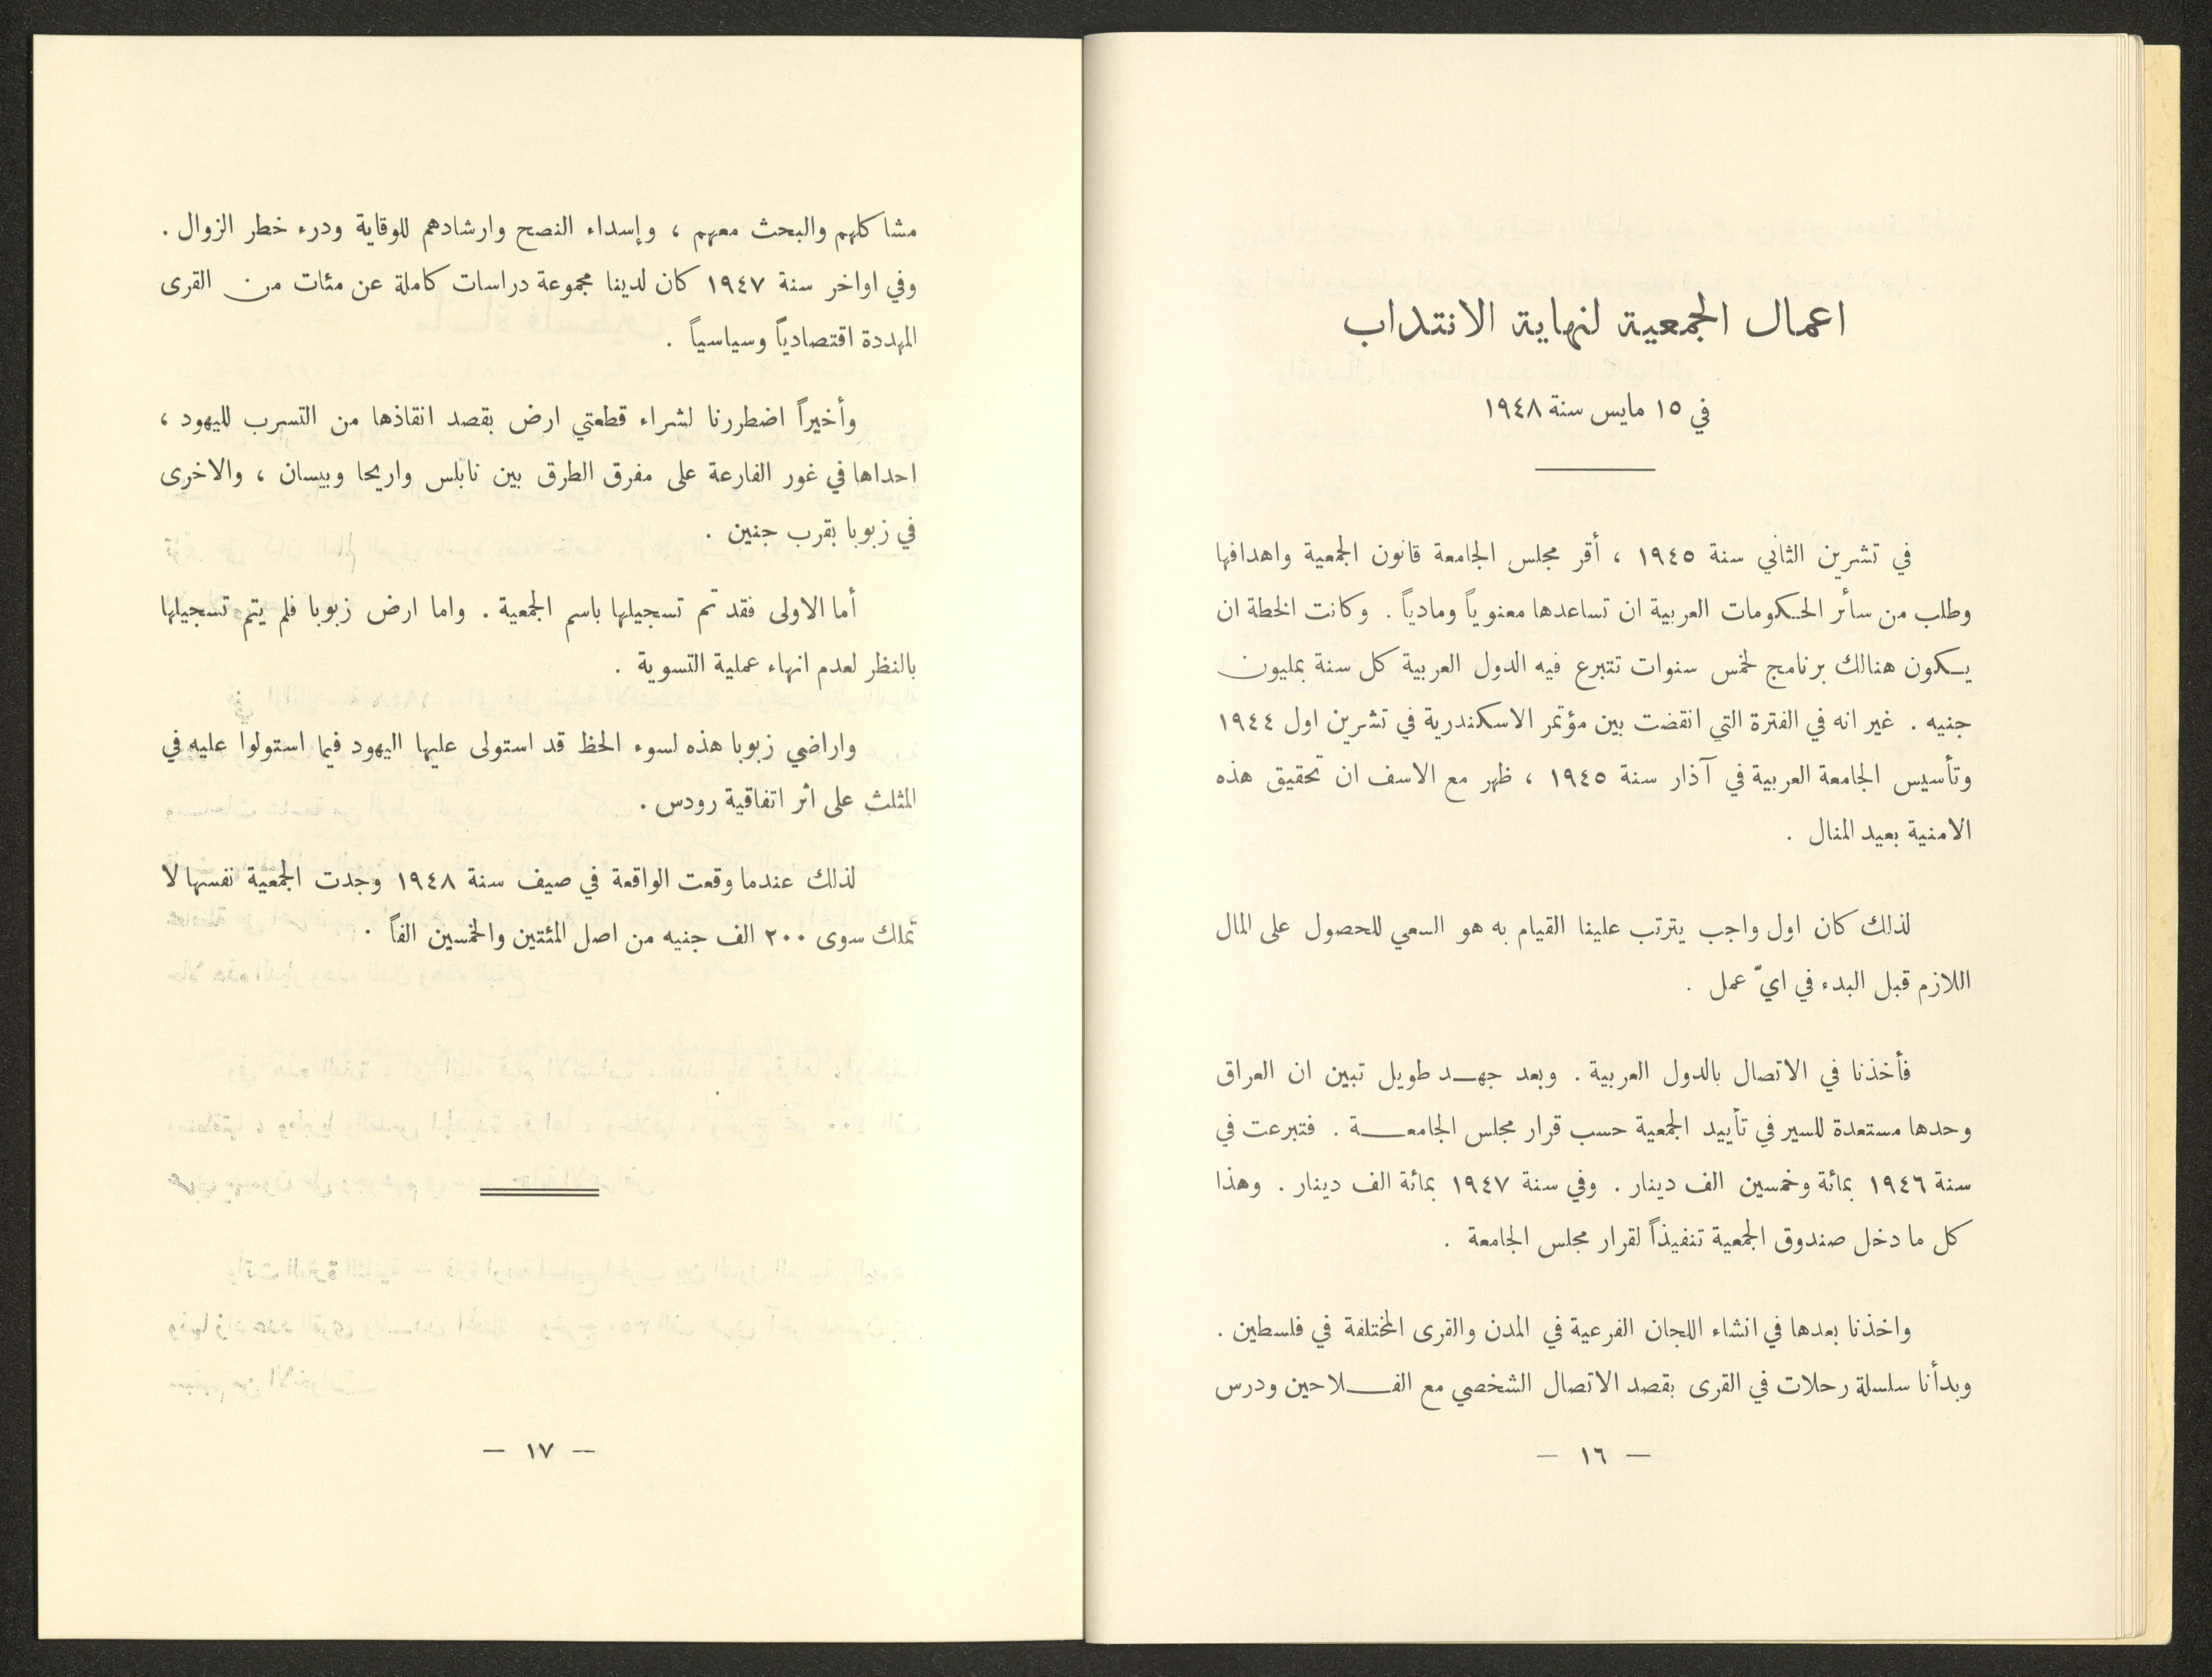 اعمال الجمعية لنهاية الانتداب
في ١٥ مايس سنة ١٩٤٨
في تشرين الثاني سنة ١٩٤٥ ، أقر مجلس الجامعة قانون الجمعية واهدافها
وطلب من سائر الحكومات العربية ان تساعدها معنوياً ومادياً . وكانت الخطة ان
يكون هنالك برنامج لخمس سنوات تتبرع فيه الدول العربية كل سنة بمليون
جنيه . غير انه في الفترة التي انقضت بين مؤتمر الاسكندرية في تشرين اول ١٩٤٤
وتأسيس الجامعة العربية في آذار سنة ١٩٤٥ ، ظهر مع الاسف ان تحقيق هذه
الامنية بعيد المنال .
لذلك كان اول واجب يترتب علينا القيام به هو السعي للحصول على المال
اللازم قبل البدء في ايّ عمل .
فأخذنا في الاتصال بالدول العربية . وبعد جهد طويل تبين ان العراق
وحدها مستعدة للسير في تأييد الجمعية حسب قرار مجلس الجامعة . فتبرعت في
سنة ١٩٤٦ بمائة وخمسين الف دينار . وفي سنة ١٩٤٧ بمائة الف دينار . وهذا
كل ما دخل صندوق الجمعية تنفيذاً لقرار مجلس الجامعة .
واخذنا بعدها في انشاء اللجان الفرعية في المدن والقرى المختلفة في فلسطين .
وبدأنا سلسلة رحلات في القرى بقصد الاتصال الشخصي مع الفلاحين ودرس
— ١٦ —
مشاكلهم والبحث معهم ، وإسداء النصح وارشادهم للوقاية ودرء خطر الزوال .
وفي اواخر سنة ١٩٤٧ كان لدينا مجموعة دراسات كاملة عن مئات من القرى
المهددة اقتصادياً وسياسياً .
وأخيراً اضطررنا لشراء قطعتي ارض بقصد انقاذها من التسرب لليهود ،
احداها في غور الفارعة على مفرق الطرق بين نابلس واريحا وبيسان ، والاخرى
في زبوبا بقرب جنين .
أما الاولى فقد تم تسجيلها باسم الجمعية . واما ارض زبوبا فلم يتم تسجيلها
بالنظر لعدم انهاء عملية التسوية .
واراضي زبوبا هذه لسوء الحظ قد استولى عليها اليهود فيما استولوا عليه في
المثلث على اثر اتفاقية رودس .
لذلك عندما وقعت الواقعة في صيف سنة ١٩٤٨ وجدت الجمعية نفسها لا
تملك سوى ٢٠٠ الف جنيه من اصل المئتين والخمسين الفاً .
— ١٧ —